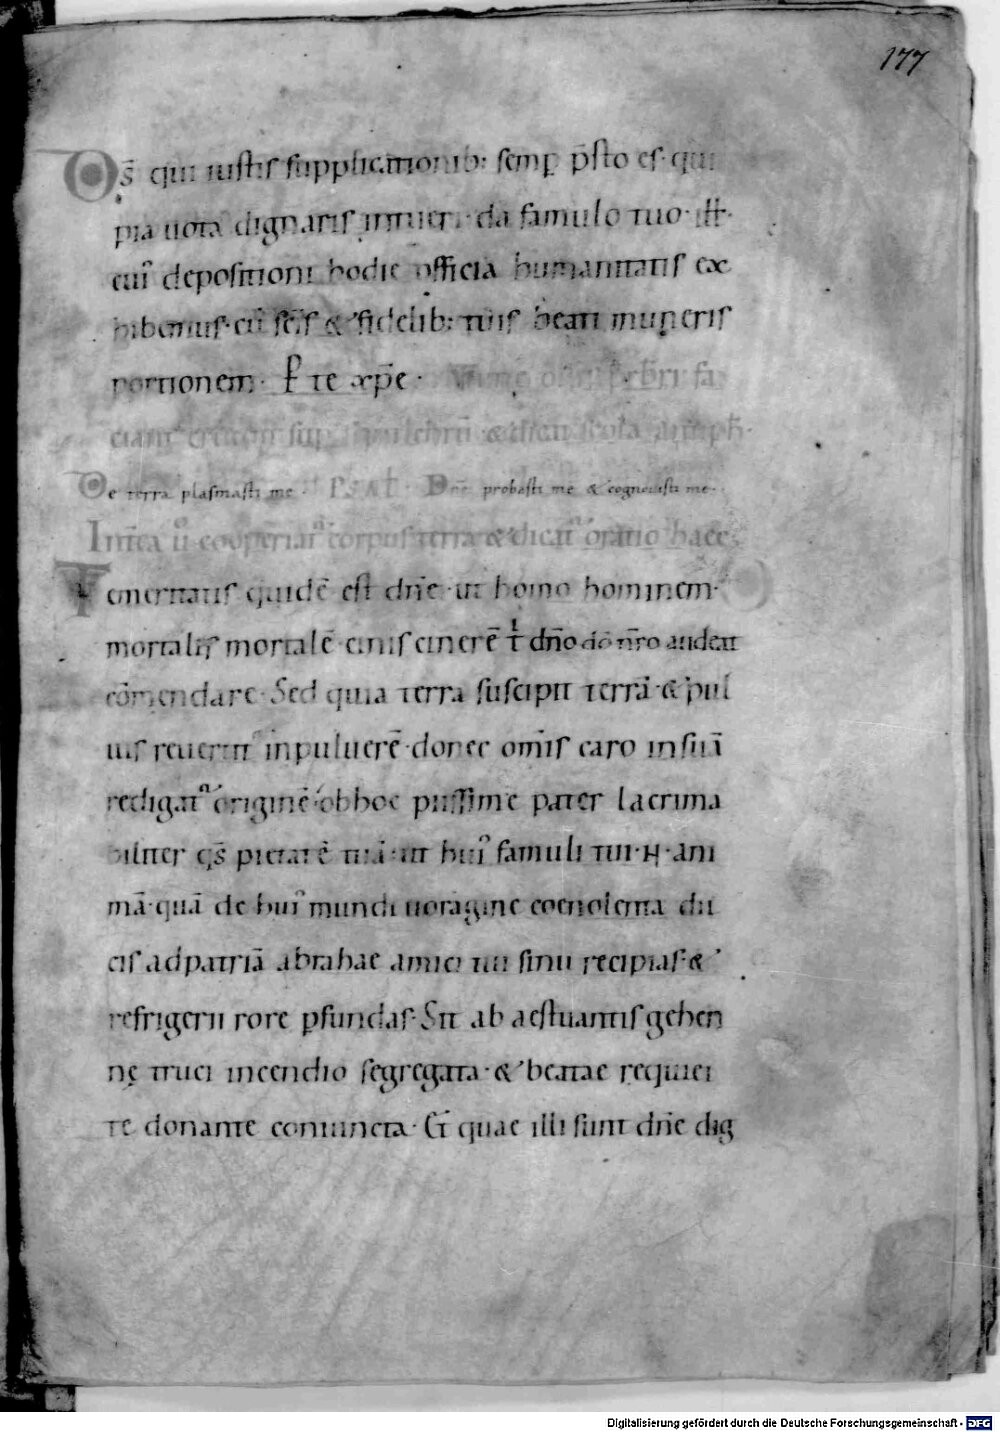 177
D̄s qui iustis supplicationib: semp p̄sto es· qui
pia uota dignaris intueri· da famulo tuo· ill·
cui' depositioni hodie officia humanitatis ex
hibemus· cū sc̄is & fidelib: tuis beati muneris
portionem· P te xp̄e· fa
ciant
De terra plasmasti me· PSAL Dn̄e probasti me & cognouisti me·
Interea ū cooperiat᷑ corpus terra & dicat᷑ oratio haec·
Temeritatis quidē est dn̄e· ut homo hominem·
mortalis mortalē· cinis cinerē t dn̄o dō nr̄o audeat
cōmendare· Sed quia terra suscipit terrā· & pul
uis reuertit᷑ in puluerē· donec om̄is caro in suā
redigat᷑ originē· ob hoc piissime pater lacrima
bilit̄er q̄s pietatē tuā· ut hui' famuli tui· N· ani
mā· quā de hui' mundi uoragine coenolenta du
cis ad patriā abrahae amici tui sinu recipias· &
refrigerii rore pfundas· Sit ab aestuantis gehen
nę truci incendio segregata· & beatae requiei
te donante coniuncta· Et quae illi sunt dn̄e dig
Digitalisierung gefördert durch die Deutsche Forschungsgemeinschaft - DFG